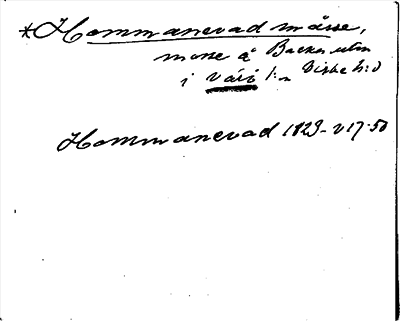 *Hommanevad måsse,
mosse å Backa utm
i Väsö s:n Viske h:d
Hommanevad 1823-v17.50